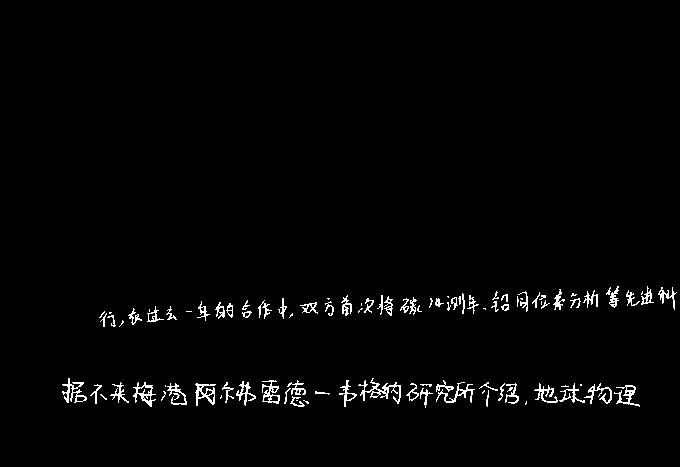 行,在过去一年的合作中,双方首次将碳14测年、铅同位素分析等先进科
据不来梅港阿尔弗雷德一韦格纳研究所介绍,地球物理